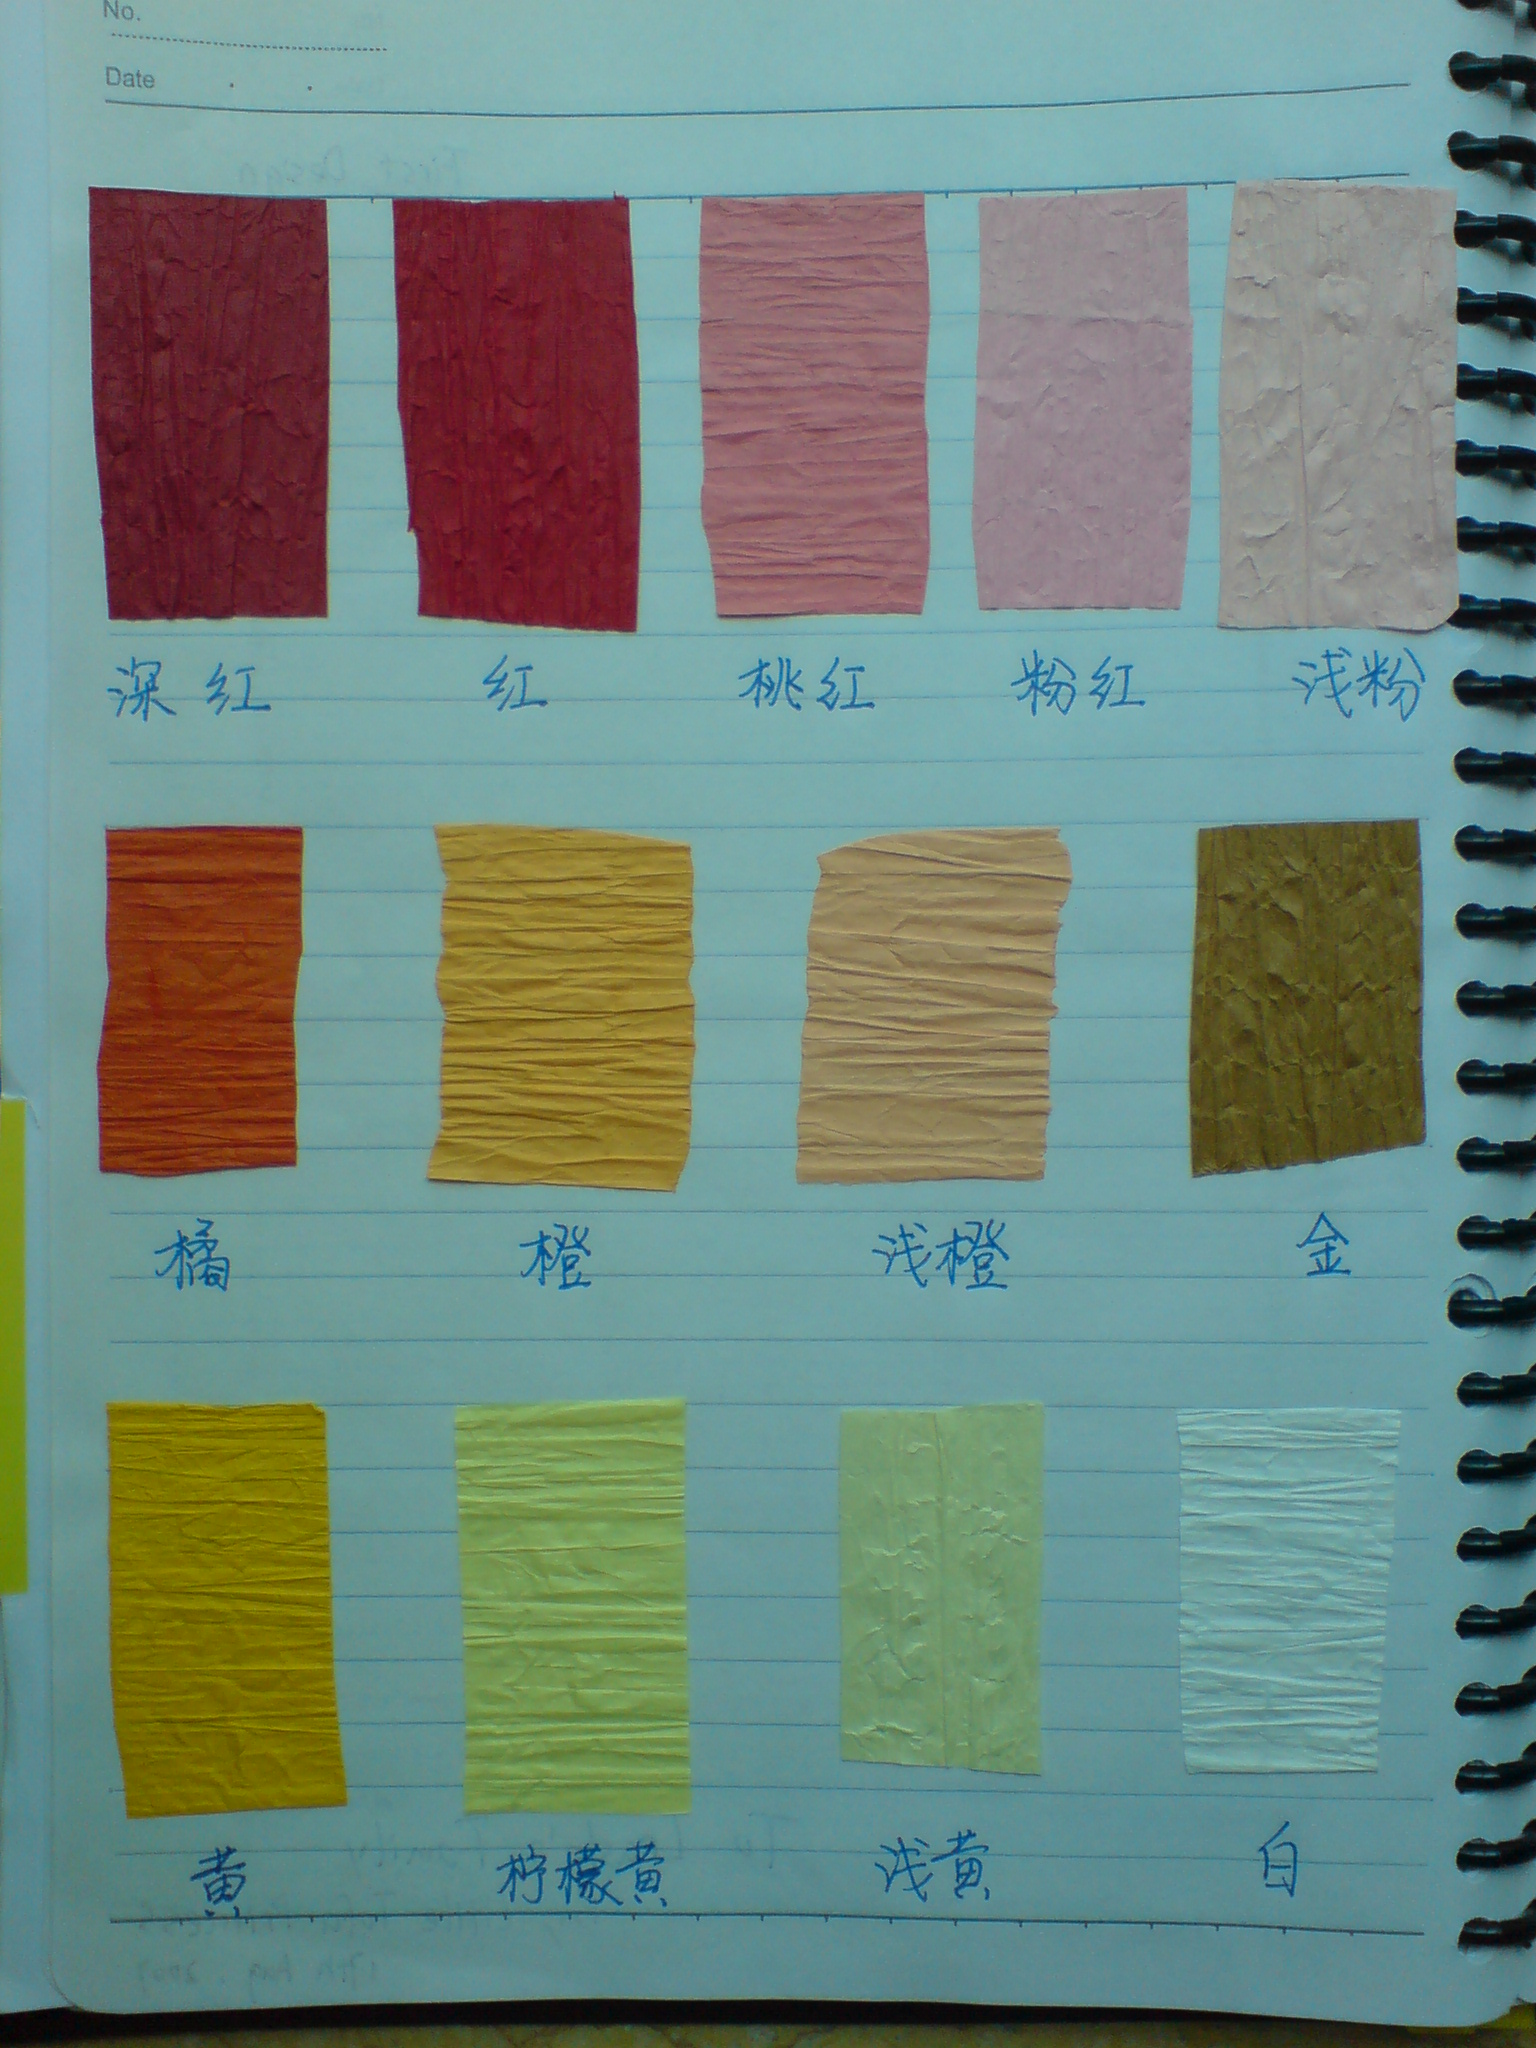 No.
Date . .
深红 红 桃红 粉红 浅粉
橘 橙 浅橙 金
黄 柠檬黄 浅黄 白